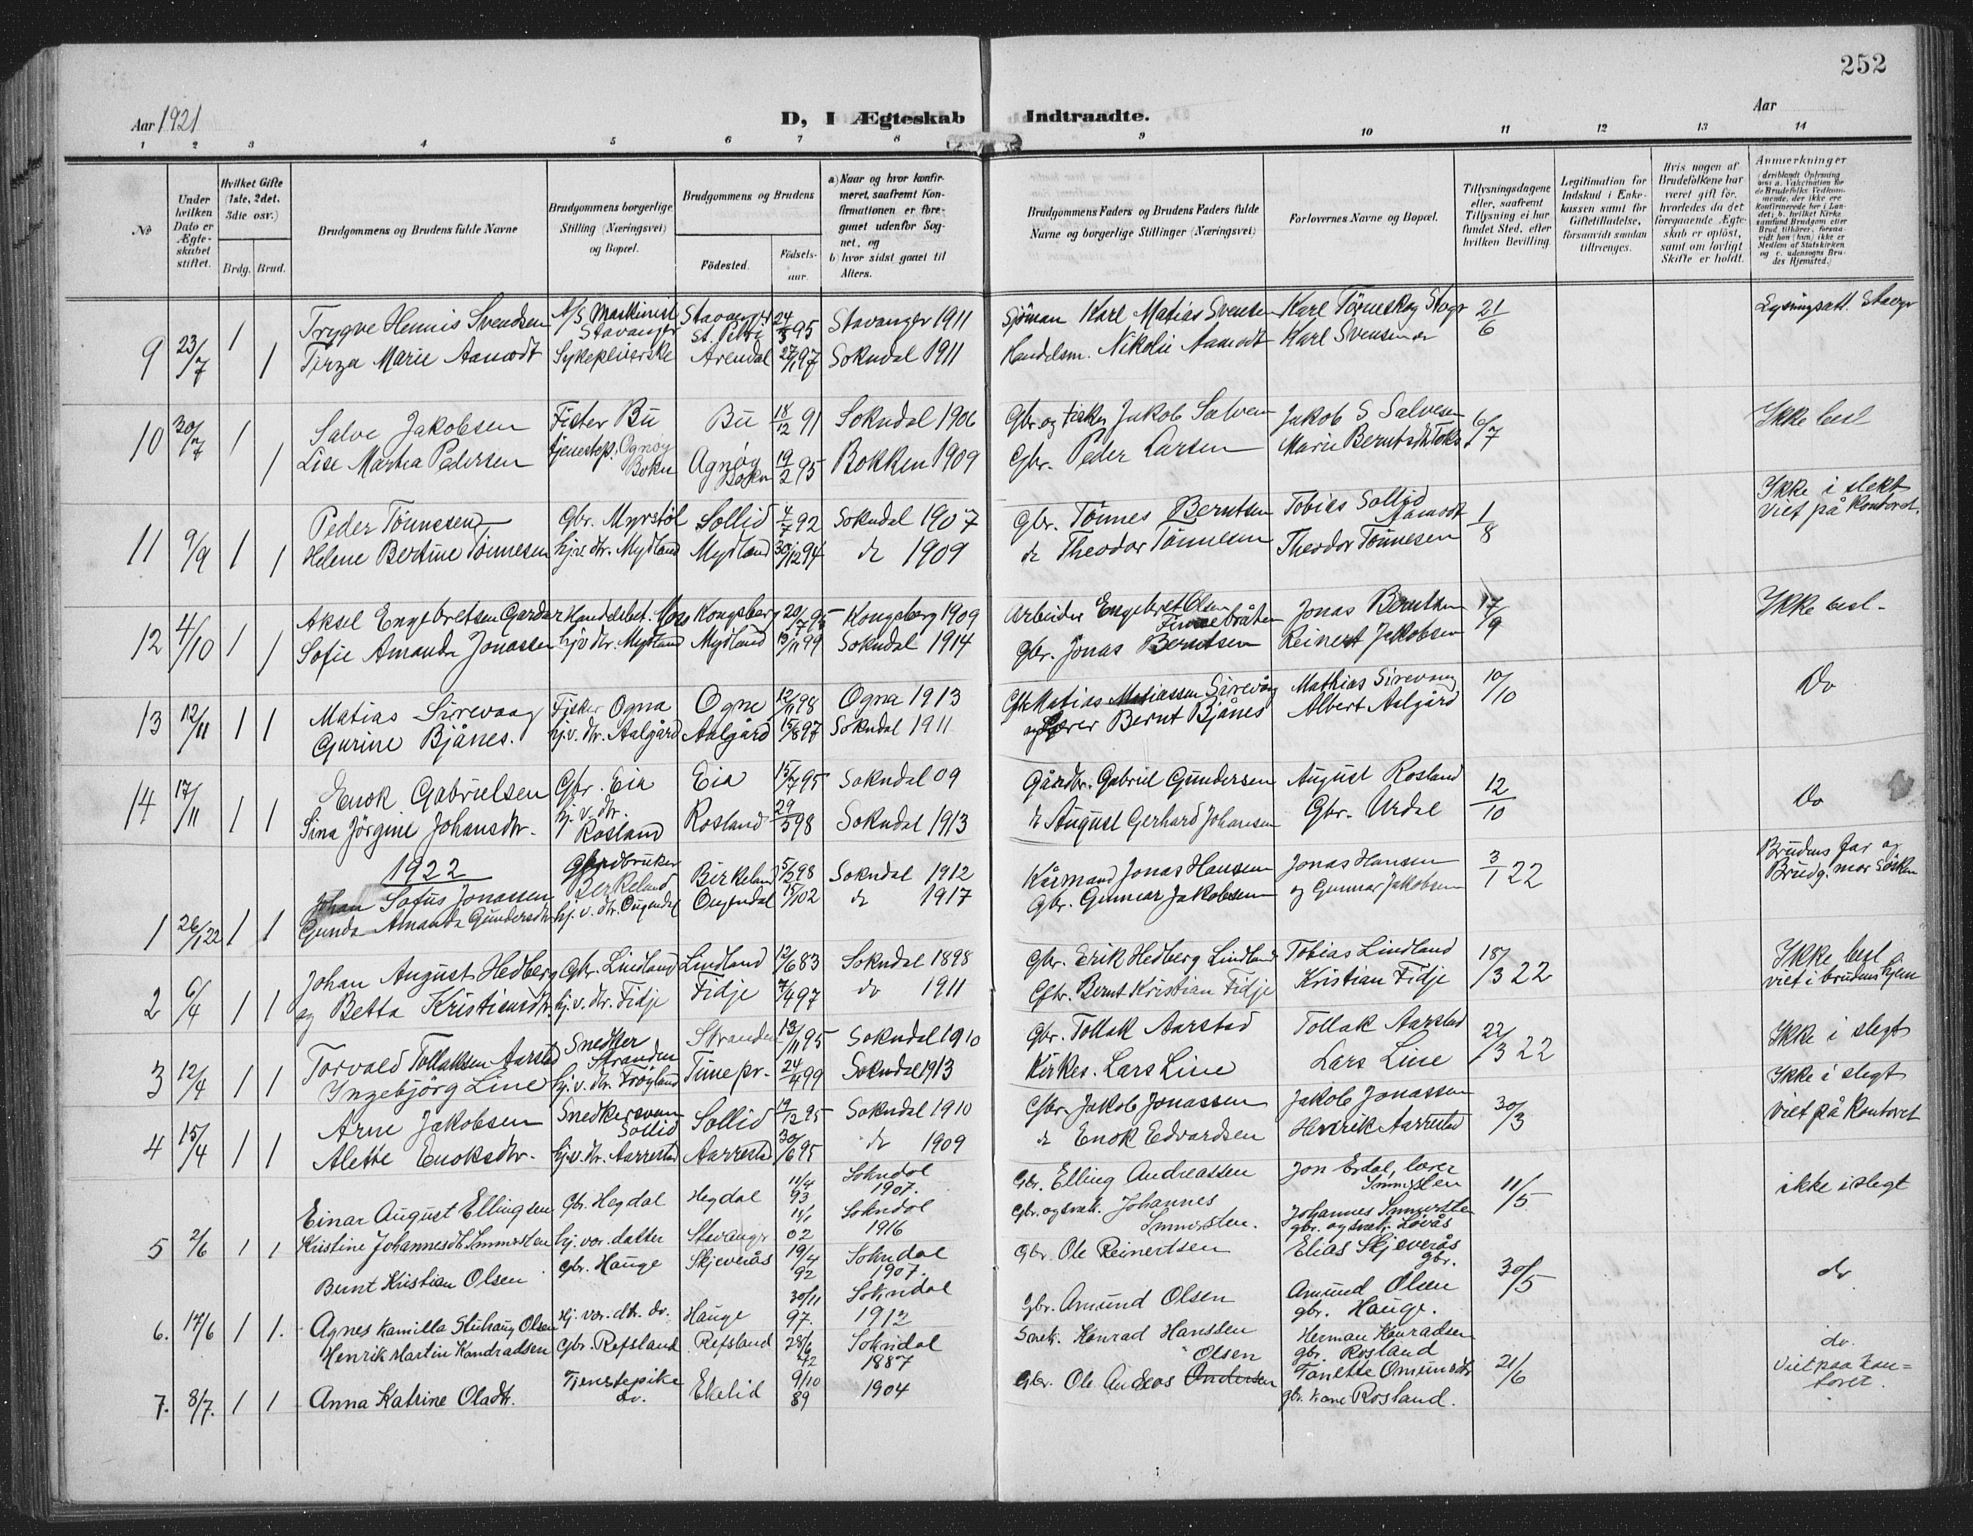 252
Aar 1921
D, I Ægteskab Indtraadte.
Aar
1 2 3 4 5 6 7 8 9 10 11 12 13 14
No
Under hvilken Dato er Ægteskabet stiftet.
Hvilket Gifte (1ste, 2det. 3die osv.)
Brdg. Brud.
Brudgommens og Brudens fulde Navne
Brudgommens borgerlige Stilling (Næringsvei) og Bopæl.
Brudgommens og Brudens
Födested.
Födselsaar.
a) Naar og hvor konfirmeret, saafremt Konfirmationen er foregaaet udenfor Sognet, og
b) hvor sidst gaaet til Alters.
Brudgommens Faders og Brudens Faders fulde Navne og borgerlige Stillinger (Næringsvei)
Forlovernes Navne og Bopæl.
Tillysningsdagene eller, saafremt Tillysning ei har fundet Sted, efter hvilken Bevilling.
Legitimation for Indskud i Enkekassen samt for Giftetilladelse, forsaavidt saadan tiltrænges.
Hvis nogen af Brudefolkene har været gift för, hvorledes da det foregaaende Ægteskab er oplöst, samt om lovligt Skifte er holdt.
Anmærkninger
9 23/7 1 Trygve Hennis Svendsen Maskinist Stavanger Stavanger St. Petri 95 Stavanger 1911 Sjöman Karl Matias Svensen Karl 21/6 Lysningsatt. Stavgr
1 Tirza Marie Aamodt Sykepleierske Arendal 97 Sokndal 1911 Handelsm. Nikolai Aamodt Karl Svensen
10 30/7 1 Salve Jakobsen Fisker Bu Bu 18/12 91 Sokndal 1906 Gbr og fisker Jakob Salvesen Jakob S Salvesen 6/7 Ikke besl
1 Lise Martha Pedersen tjenestep. Ognøy Bokn Agnøy Bokn 19/2 95 Bokken 1909 Gbr. Peder Larsen
11 9/9 1 Peder Tönnesen Gbr. Myrstöl Sollid 4/7 92 Sokndal 1907 Gbr. Tönnes Berntsen Tobias Sollid Aamodt 1/8 Ikke i slekt
1 Helene Bertine Tönnesen hj.v.dtr. Mydland Mydland 30/12 94 do 1909 do Theodor Tönnesen Theodor Tönnesen Viet på kontoret.
12 4/10 1 Aksel Engebretsen Garder Handelsbet. Moss Kongsberg 20/7 95 Kongsberg 1909 Arbeider Engebret Olsen Finnebråten Jonas Berntsen 17/9 Ikke besl-
1 Sofie Amanda Jonassen hj v dtr. Mydland Mydland 13/11 99 Sokndal 1914 Gbr. Jonas Berntsen Reinert Jakobsen
13 12/11 1 1 Matias Sirevaag Fisker Ogna Ogna 12/11 98 Ogna 1913 Matias Matiassen Sirevåg Mathias Sirevaag 10/10 Do
Gurine Bjånes. hj.v.dtr. Aalgård Aalgård 15/8 97 Sokndal 1911 Lærer Bernt Bjånes Albert Aalgård
14 17/11 1 1 Enok Gabrielsen Gbr. Eia Eia 15/7 95 Sokndal 09 Gårdbr. Gabriel Gundersen August Rosland 12/10 Do
Sina Jörgine Johansdtr. hj.v.dtr. Rosland Rosland 29/5 98 Sokndal 1913 do August Gerhard Johansen Gbr. Urdal
1922
1 26/1 22 1 1 Johan Sofus Jonassen Gårdbruker Berkeland Birkeland 5/2 98 Sokndal 1912 Kårmand Jonas Hansen Jonas Hansen 3/1 22 Brudens far og
Gunda Amanda Gundersdtr hj.v.dtr. Ougendal Ougendal 15/1 02 do 1917 Gbr. Gunnar Jakobsen og Gunnar Jakobsen Brudg. mor Søsken
2 6/4 1 1 Johan August Hedberg Gbr. Lindland Lindland 12/6 83 Sokndal 1898 Gbr. Erik Hedberg Lindland Tobias Lindland 18/3 22 Ikke besl
og Betta Kristiansdtr. hj.v.dtr. Fidje Fidje 7/4 97 do 1911 Gbr. Bernt Kristian Fidje Kristian Fidje viet i brudens hjem
3 12/4 1 1 Torvald Tollaksen Aarstad Snedker Stranden Stranden 13/11 95 Sokndal 1910 Gbr. Tollak Aarstad Tollak Aarstad 22/3 22 Ikke i slegt
Ingebjörg Line hj.v.dtr. Frøyland Time pr. 24/4 99 Sokndal 1913 Kirkes. Lars Line Lars Line
4 15/4 1 1 Arne Jakobsen Snedkersvenn Sollid Sollid 19/12 95 Sokndal 1910 Gbr. Jakob Jonassen Jakob Jonassen 30/3 Ikke i slegt
Alette Enoksdtr. hj.v.dtr. Aarrestad Aarrestad 30/6 95 do 1909 do Enok Edvardsen Henrik Aarrestad Viet på kontoret
5 2/6 1 1 Einar August Ellingsen Gbr. Hegdal Hegdal 11/4 93 Sokndal 1907. Gbr. Elling Andreassen Jon Erdal, lærer 11/5 ikke i slegt
Kristine Johannesdtr. Immersten hj. vær. datter Stavangr 11/1 02 Sokndal 1916 Gbr. og snek. Johannes Immersten. Johannes Immersten gbr. og snek. Lovås
6. 17/6 1 1. Bernt Kristian Olsen Gbr. Hauge Skjeverås 19/4 92 Sokndal 1907. Gbr. Ole Reinertsen Elias Skjeverås gbr. 30/5 do
Agnes Kamilla Stuhaug Olsen Hj. vær. dtr. do. Hauge 30/11 97. Sokndal 1912 Gbr. Amund Olsen Amund Olsen gbr. Hauge.
7. 8/7. 1 1 Henrik Martin Kondradsen Gbr. Refsland Refsland 28/6 72 Sokndal 1887 Snek. Konrad Hansen Olsen Herman Konradsen gbr. Rosland 21/6 do.
Anna Katrine Oladtr. Tjenestepike do. Ekelid 9/10 89 1904 Gbr. Ole Andreas Andersen Tanette Omundsdtr. gbr. kone Rosland. Viet paa kontoret.